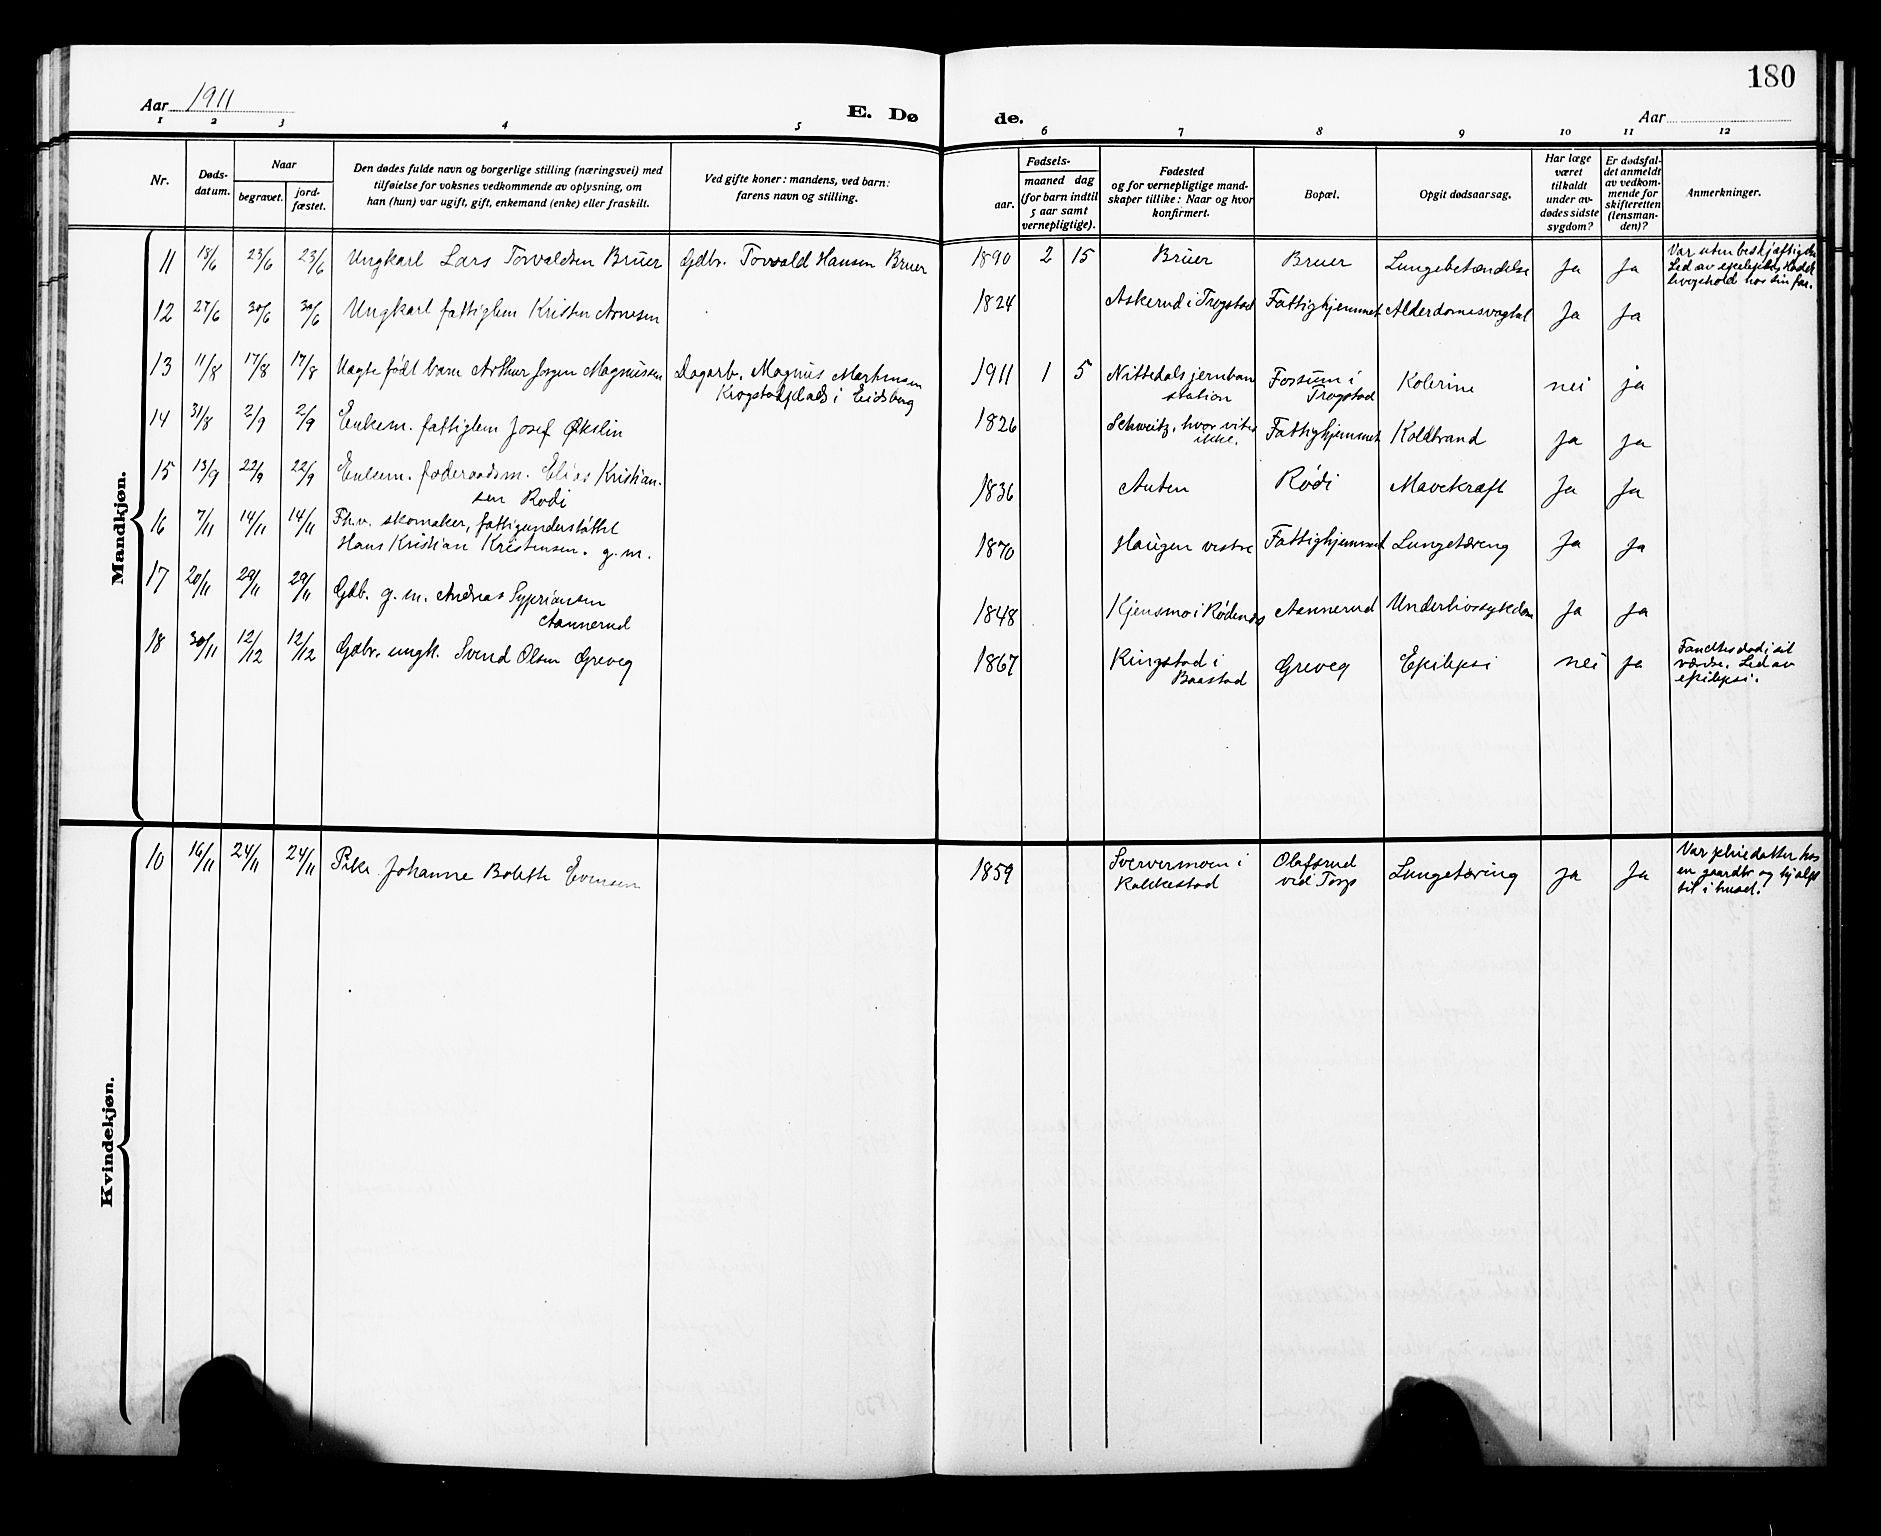 180
Aar 1911
E. Dø
de.
Aar
1 2 3 4 5 6 7 8 9 10 11 12
Nr.
Døds-
datum.
Naar
begravet.
jord-
fæstet.
Den dødes fulde navn og borgerlige stilling (næringsvei) med
tilføielse for voksnes vedkommende av oplysning, om
han (hun) var ugift, gift, enkemand (enke) eller fraskilt.
Ved gifte koner: mandens, ved barn:
farens navn og stilling.
Fødsels-
aar.
maaned dag
(for barn indtil
5 aar samt
vernepligtige).
Fødested
og for vernepligtige mand-
skaper tillike: Naar og hvor
konfirmert.
Bopæl.
Opgit dødsaarsag.
Har læge
været
tilkaldt
under av-
dødes sidste
sygdom?
Er dødsfal-
det anmeldt
av vedkom-
mende for
skifteretten
(lensman-
den)?
Anmerkninger.
Mandkjøn.
11 18/6 23/6 23/6 Ungkarl Lars Torvaldsen Bruer Gdbr. Torvald Hansen Bruer 1890 2 15 Bruer Bruer Lungebetændelse Ja Ja Var uten beskjæftigelse
Led av epilepsi, Hadde
livophold hos sin far.
12 27/6 30/6 30/6 Ungkarl fattiglem Kristen Arnesen 1824 Askerud i Trøgstad Fattighjemmet Alderdomssvaghet Ja Ja
13 11/8 17/8 17/8 Uegte født barn Arthur Jørgen Magnussen Dagarb. Magnus Martinsen
Krogstadplads i Eidsberg 1911 1 5 Nittedals jernban
station Fossum i
Trøgstad Kolerine nei ja
14 31/8 2/9 2/9 Enkem. fattiglem Josef Økslin 1826 Schweitz, hvor vites
ikke. Fattighjemmet Koldbrand Ja Ja
15 13/9 22/9 22/9 Enkem. føderaadsm. Elias Kristian-
sen Rødi 1836 Auten Rødi Mavekræft Ja Ja
16 7/11 14/11 14/11 Fh.v. skomaker, fattigunderstøttet
Hans Kristian Kristensen. g. m. 1870 Haugen vestre Fattighjemmet Lungetæring Ja Ja
17 20/11 29/11 29/11 Gdb. g. m. Andreas Sypriansen
Aannerud 1848 Kjensmo i Rødenes Aannerud Underlivssykdom Ja Ja
18 30/11 12/12 12/12 Gdbr. ungk. Svend Olsen Greveg 1867 Ringstad i
Baastad Greveg Epilepsi nei Ja Fandtes død i sit
værelse. Led av
epilepsi.
Kvindekjøn.
10 16/11 24/11 24/11 Pike Johanne Boleth Evensen 1859 Svervesmoen i
Rakkestad Olafsrud
ved Torp Lungetæring ja Ja Var pleiedatter hos
en gaardbr og hjalp
til i huset.